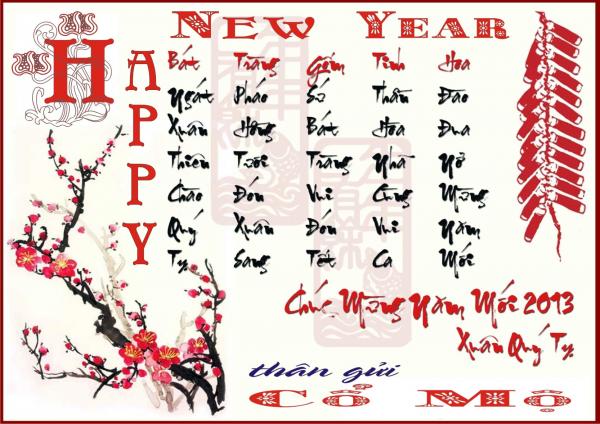 Happy New Year
Bát Tràng Gốm Tinh Hoa
Ngát Pháo Sứ Thần Đào
Xuân Hồng Bát Hoa Đua
Thiên Tươi Tràng Nhà Nở
Chào Đón Vui Cùng Mừng
Quý Xuân Đón Vui Năm
Tỵ Sang Tết Ca Mới
Chúc Mừng Năm Mới 2013
Xuân Quý Tỵ
thân gửi
Cổ Mộ